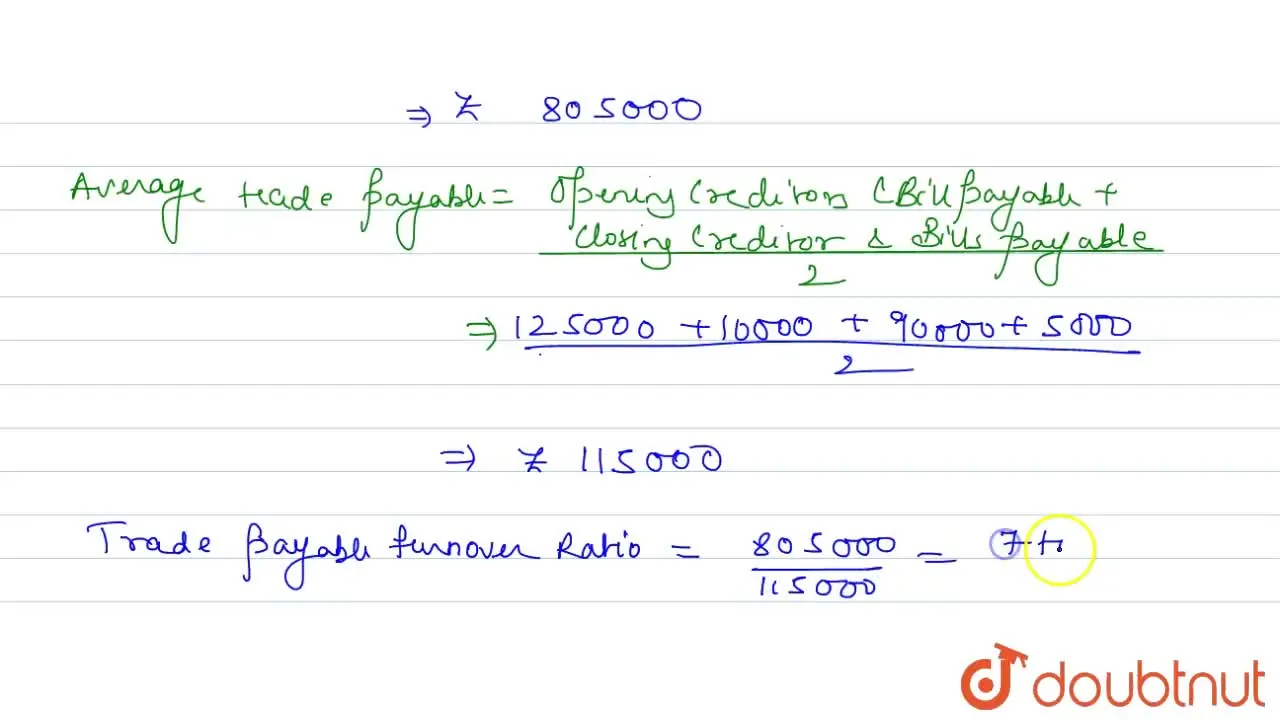 ⇒ ₹ 805000
Average trade payable = Opening Creditors & Bill payable +
Closing Creditor & Bills payable
2
⇒ 125000 + 10000 + 90000 + 5000
2
⇒ ₹ 115000
Trade payable turnover Ratio = 805000 = 7 t
115000
doubtnut